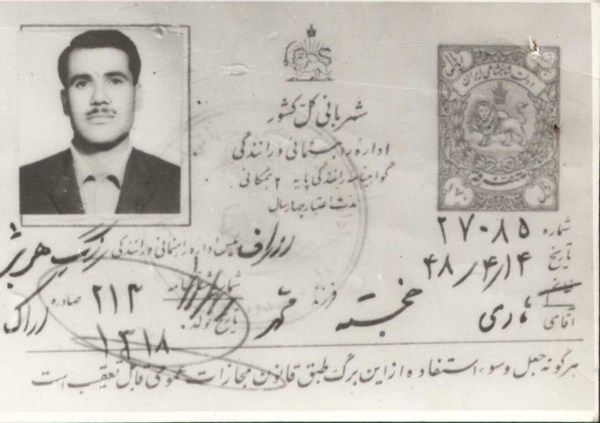 دولت شاهنشاهی ایران
شهربانی کل کشور
اداره راهنمائی و رانندگی
گواهینامه رانندگی پایه ۲ همگانی
مدت اعتبار چهار سال
شماره ۲۷۰۸۵
تاریخ ۴۸/۴/۱۴
رئیس اداره راهنمائی و رانندگی
آقای
فرزند
شماره شناسنامه ۲۱۳ صادره اراک
تاریخ تولد ۱۳۱۸
هرگونه جعل و سوء استفاده از این برگ طبق قانون مجازات عمومی قابل تعقیب است